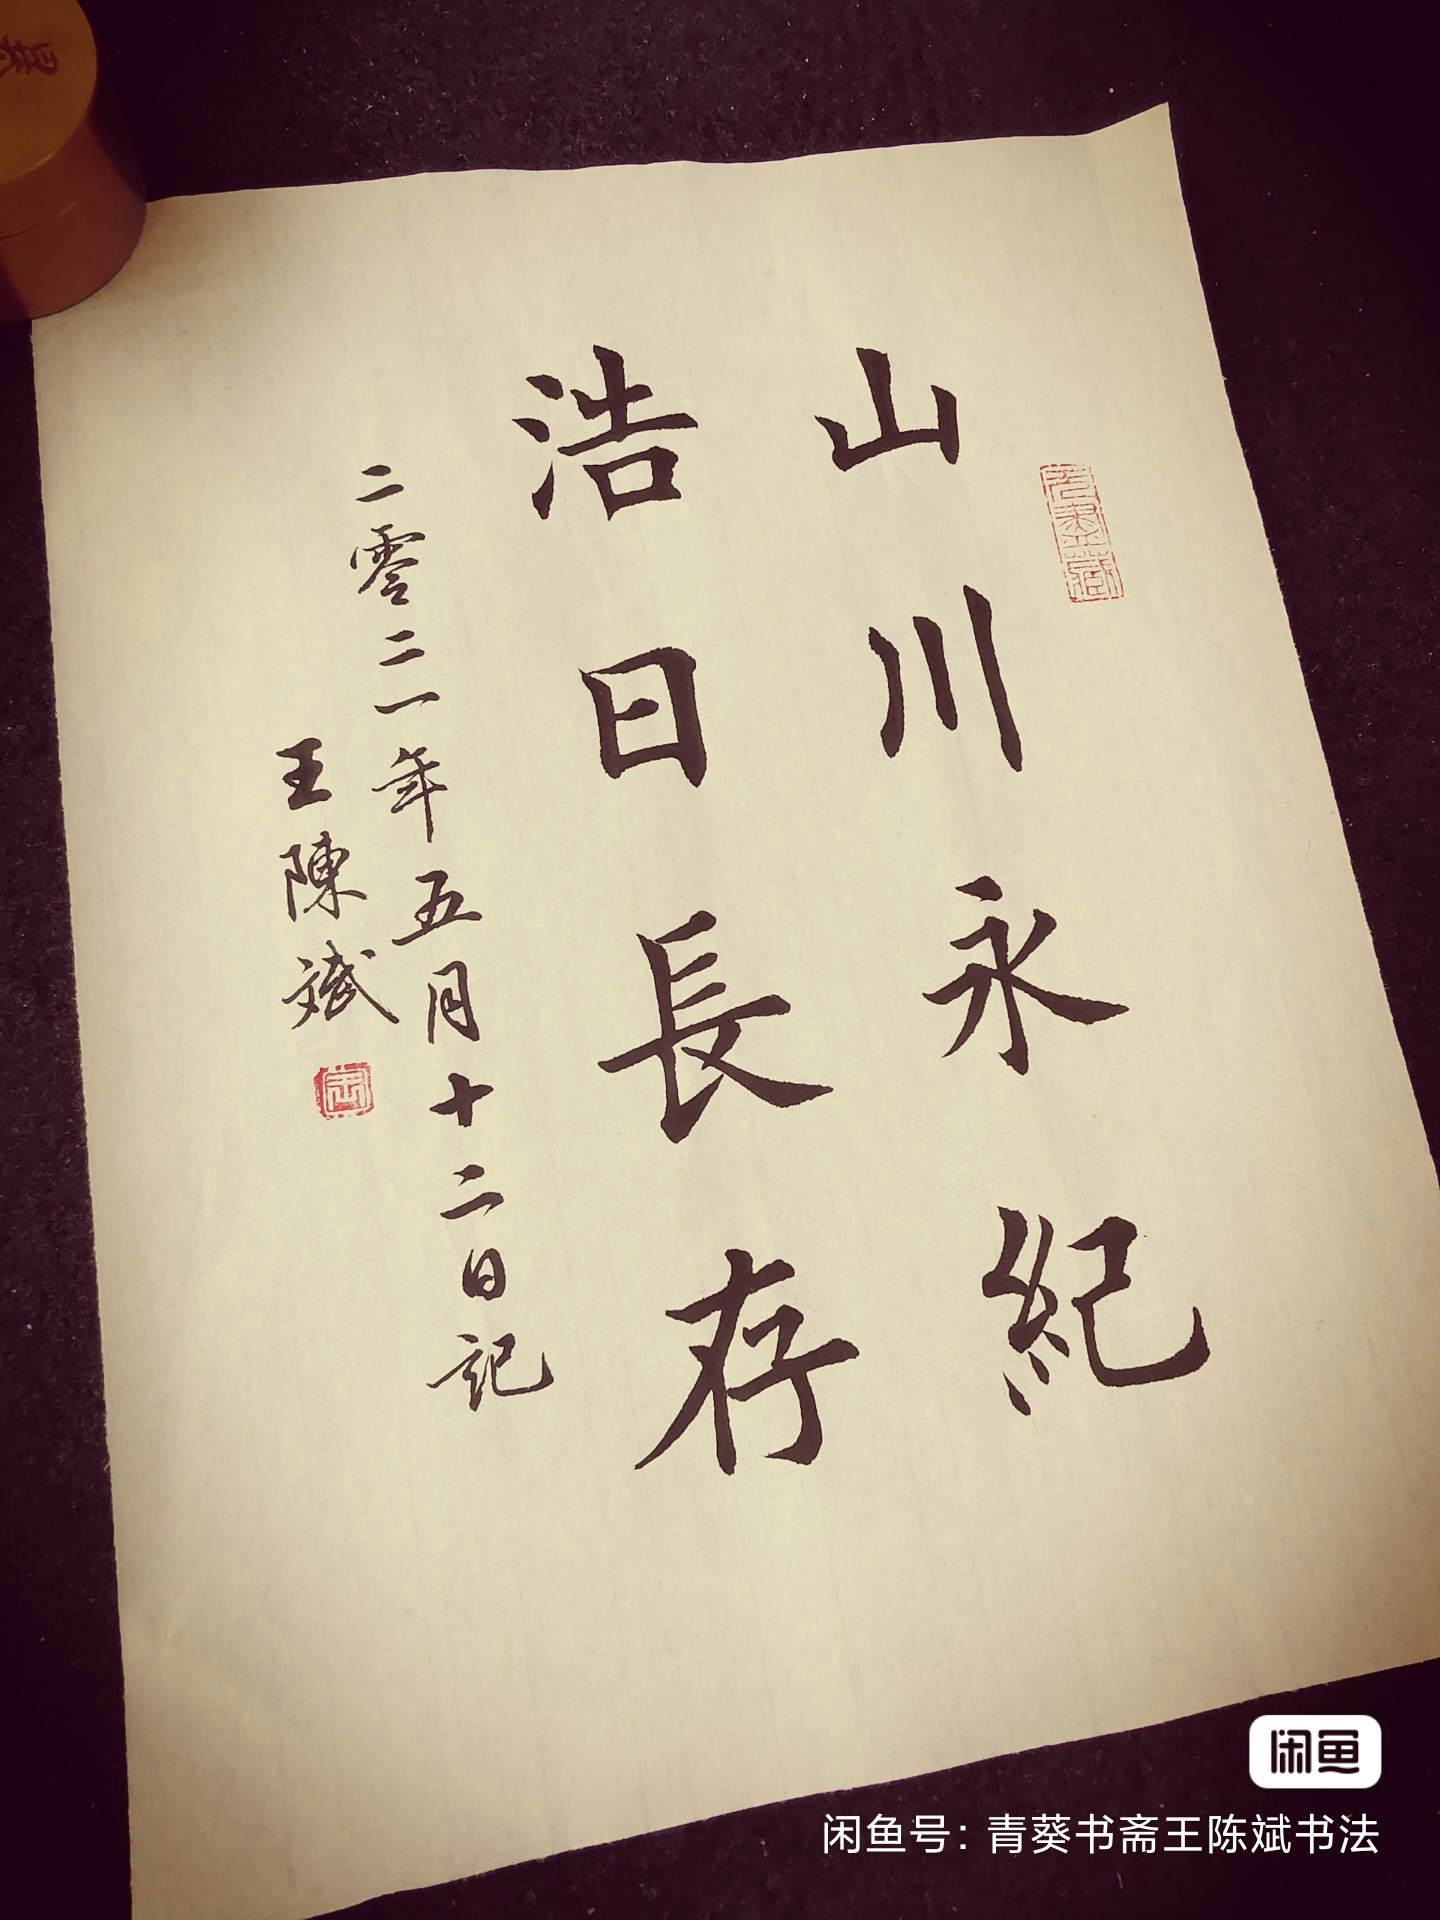 山川永紀
浩日長存
二零二一年五月十二日記
王陳斌
闲鱼
闲鱼号：青葵书斋王陈斌书法